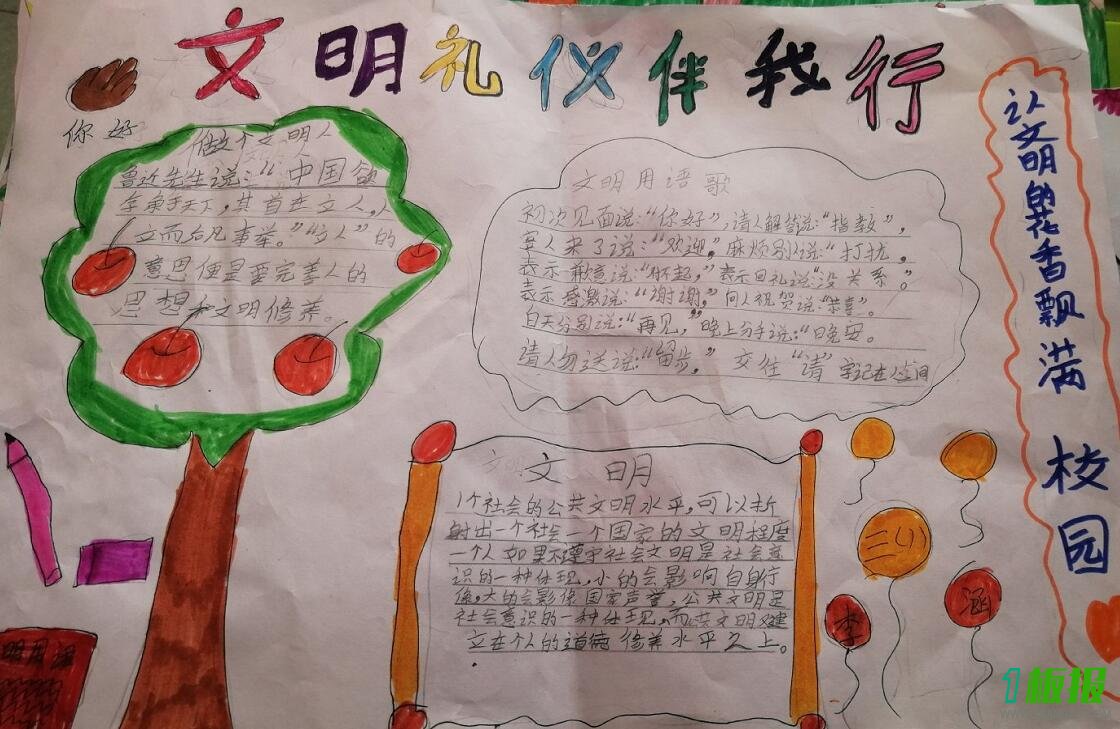 文明礼仪伴我行
你好
做个文明人
鲁迅先生说:“中国欲
存争于天下,其首在立人,人
立而后凡事举。”“立人”的
意思便是要完善人的
思想和文明修养。
文明用语歌
初次见面说:“你好”,请人解答说:“指教”,
客人来了说:“欢迎”,麻烦别人说:“打扰,
表示歉意说:“对不起,”表示回礼说:“没关系。
表示感激说:“谢谢,”向人祝贺说:“恭喜”。
白天分别说:“再见,”晚上分手说:“晚安。
请人勿送说:“留步,” 交往“请”字记在心间
文明
1个社会的公共文明水平,可以折
射出一个社会一个国家的文明程度
一个人如果不遵守社会文明是社会意
识的一种体现,小的会影响自身行
像,大的会影像国家声誉,公共文明是
社会意识的一种体现,而共文明又建
立在个人的道德修养水平之上。
让人文明的花香飘满校园
三(1)
李
涵
明用语
1板报